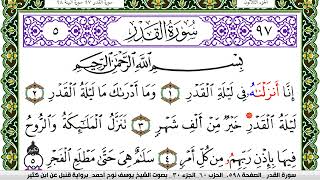 الجزء الثلاثون
٩٧ سُورَةُ الْقَدْرِ ٥
بِسْمِ اللَّهِ الرَّحْمَٰنِ الرَّحِيمِ
إِنَّا أَنزَلْنَٰهُ فِي لَيْلَةِ الْقَدْرِ ١ وَمَا أَدْرَىٰكَ مَا لَيْلَةُ الْقَدْرِ ٢
لَيْلَةُ الْقَدْرِ خَيْرٌ مِّنْ أَلْفِ شَهْرٍ ٣ تَنَزَّلُ الْمَلَٰٓئِكَةُ وَالرُّوحُ
فِيهَا بِإِذْنِ رَبِّهِمُ مِّن كُلِّ أَمْرٍ ٤ سَلَٰمٌ هِيَ حَتَّىٰ مَطْلَعِ الْفَجْرِ ٥
سورة القدر الصفحة ٥٩٨ الحزب ٦٠ الجزء ٣٠ بصوت الشيخ يوسف نوح أحمد برواية قنبل عن ابن كثير